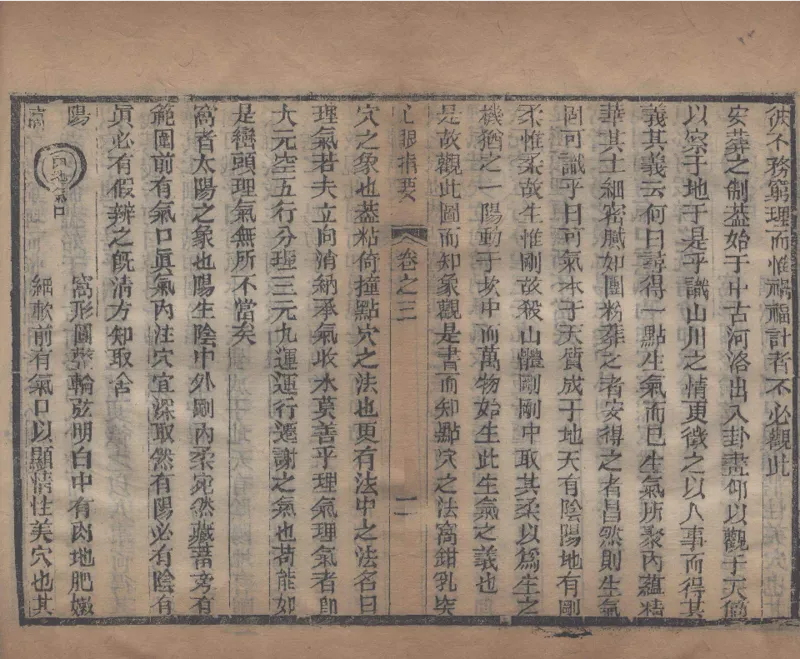 徒不務窮理而惟禍福計者不必觀此
安葬之制葢始于中古河洛出入卦畫仰以觀于天俯
以察于地于是乎識山川之情更徵之以人事而得其
義其義云何曰尋得一點生氣而已生氣所聚內蘊精
華其土細密膩如團粉葬之者安得之者昌然則生氣
固可識乎曰可氣本于天質成于地天有陰陽地有剛
柔惟柔故生惟剛故殺山體剛剛中取其柔以爲生之
機猶之一陽動于坎中而萬物始生此生氣之義也
是故觀此圖而知象觀是書而知點穴之法窩鉗乳突
心眼指要
卷之三
二
穴之象也葢粘倚撞點穴之法也更有法中之法名曰
理氣若夫立向消納承氣收水莫善乎理氣理氣者卽
大元空五行分理三元九運運行遷謝之氣也苟能如
是巒頭理氣無所不當矣
窩者太陽之象也陽生陰中外剛內柔宛然藏蓄旁有
範圍前有氣口眞氣內注穴宜深取然有陽必有陰有
眞必有假辨之旣清方知取舍
陽
窩形圓整輪弦明白中有肉地肥嫩
窩
肉地
氣口
細軟前有氣口以顯情性美穴也其